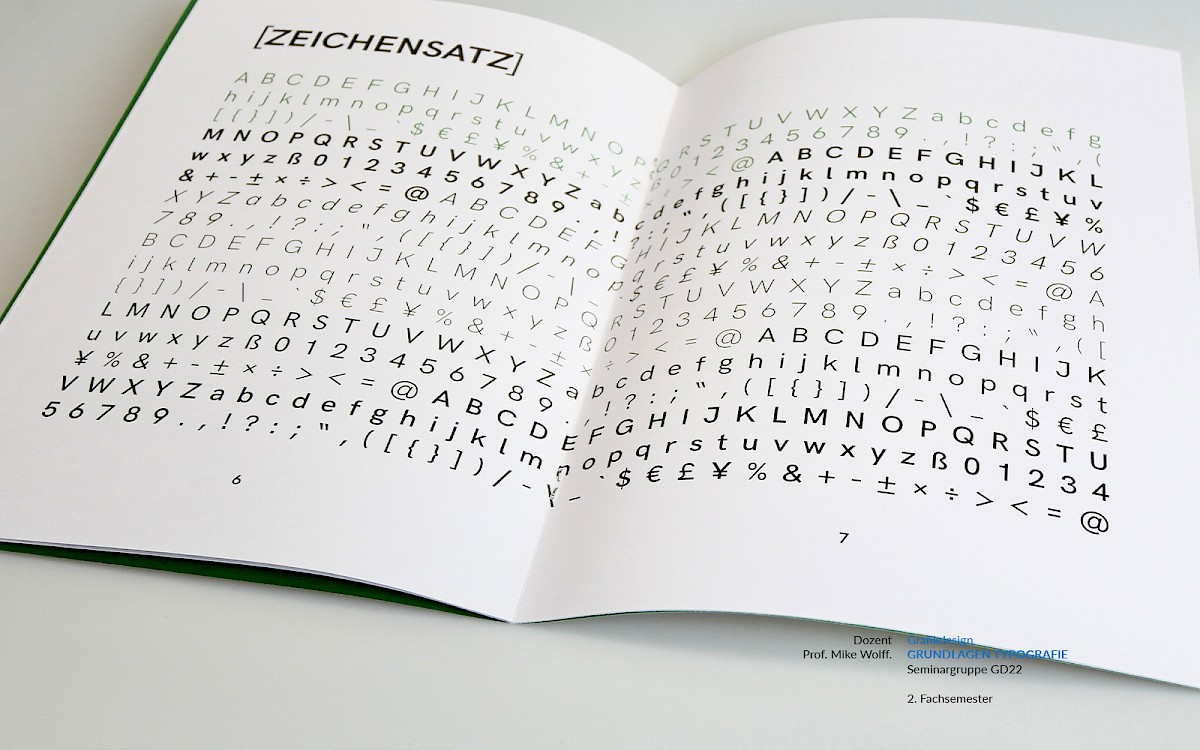 [ZEICHENSATZ]
A B C D E F G H I J K L M N O P Q R S T U V W X Y Z a b c d e f g
h i j k l m n o p q r s t u v w x y z ß 0 1 2 3 4 5 6 7 8 9 . , ! ? : ; " , (
[ { } ] ) / - \ _ ` $ € £ ¥ % & + - ± × ÷ > < = @ A B C D E F G H I J K L
M N O P Q R S T U V W X Y Z a b c d e f g h i j k l m n o p q r s t u v
w x y z ß 0 1 2 3 4 5 6 7 8 9 . , ! ? : ; " , ( [ { } ] ) / - \ _ ` $ € £ ¥ %
& + - ± × ÷ > < = @ A B C D E F G H I J K L M N O P Q R S T U V W
X Y Z a b c d e f g h i j k l m n o p q r s t u v w x y z ß 0 1 2 3 4 5 6
7 8 9 . , ! ? : ; " , ( [ { } ] ) / - \ _ ` $ € £ ¥ % & + - ± × ÷ > < = @ A
B C D E F G H I J K L M N O P Q R S T U V W X Y Z a b c d e f g h
i j k l m n o p q r s t u v w x y z ß 0 1 2 3 4 5 6 7 8 9 . , ! ? : ; " , ( [
{ } ] ) / - \ _ ` $ € £ ¥ % & + - ± × ÷ > < = @ A B C D E F G H I J K
L M N O P Q R S T U V W X Y Z a b c d e f g h i j k l m n o p q r s t
u v w x y z ß 0 1 2 3 4 5 6 7 8 9 . , ! ? : ; " , ( [ { } ] ) / - \ _ ` $ € £
¥ % & + - ± × ÷ > < = @ A B C D E F G H I J K L M N O P Q R S T U
V W X Y Z a b c d e f g h i j k l m n o p q r s t u v w x y z ß 0 1 2 3 4
5 6 7 8 9 . , ! ? : ; " , ( [ { } ] ) / - \ _ ` $ € £ ¥ % & + - ± × ÷ > < = @
6
7
Dozent
Prof. Mike Wolff.
Grafikdesign
GRUNDLAGEN TYPOGRAFIE
Seminargruppe GD22
2. Fachsemester